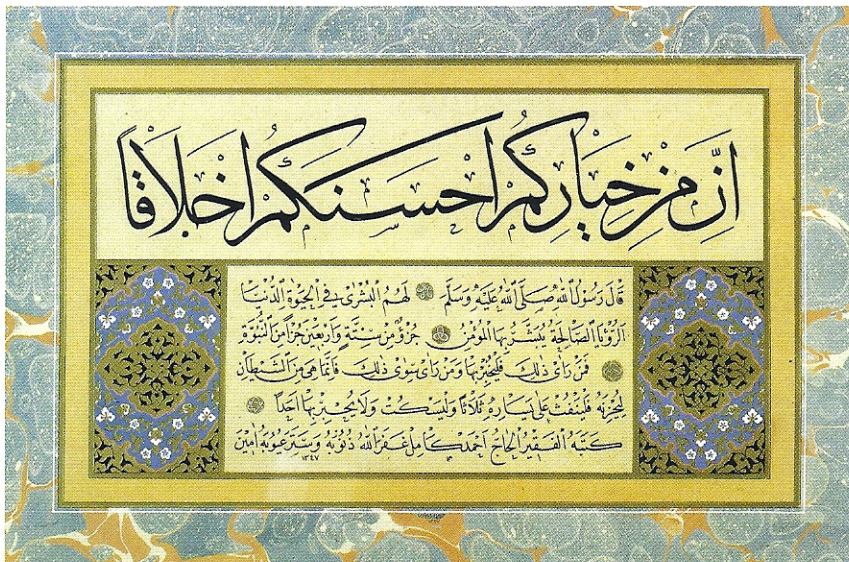 اِنَّ مِنْ خِيَارِكُمْ اَحْسَنَكُمْ اَخْلَاقًا
قَالَ رَسُولُ اللهِ صَلَّى اللهُ عَلَيْهِ وَسَلَّمَ لَهُمُ الْبُشْرٰى فِي الْحَيٰوةِ الدُّنْيَا
اَلرُّؤْيَا الصَّالِحَةُ يُبَشَّرُ بِهَا الْمُؤْمِنُ جُزْؤٌ مِنْ سِتَّةٍ وَاَرْبَعِينَ جُزْأً مِنَ النُّبُوَّةِ
فَمَنْ رَاٰى ذٰلِكَ فَلْيُخْبِرْ بِهَا وَمَنْ رَاٰى سِوٰى ذٰلِكَ فَاِنَّمَا هِيَ مِنَ الشَّيْطَانِ
لِيُحْزِنَهُ فَلْيَنْفُثْ عَلٰى يَسَارِهِ ثَلَاثًا وَلْيَسْكُتْ وَلَا يُخْبِرْ بِهَا اَحَدًا
كَتَبَهُ الْفَقِيرُ الْحَاجُّ اَحْمَدْ كَامِلْ غَفَرَ اللهُ ذُنُوبَهُ وَسَتَرَ عُيُوبَهُ اٰمِين
١٣٤٧